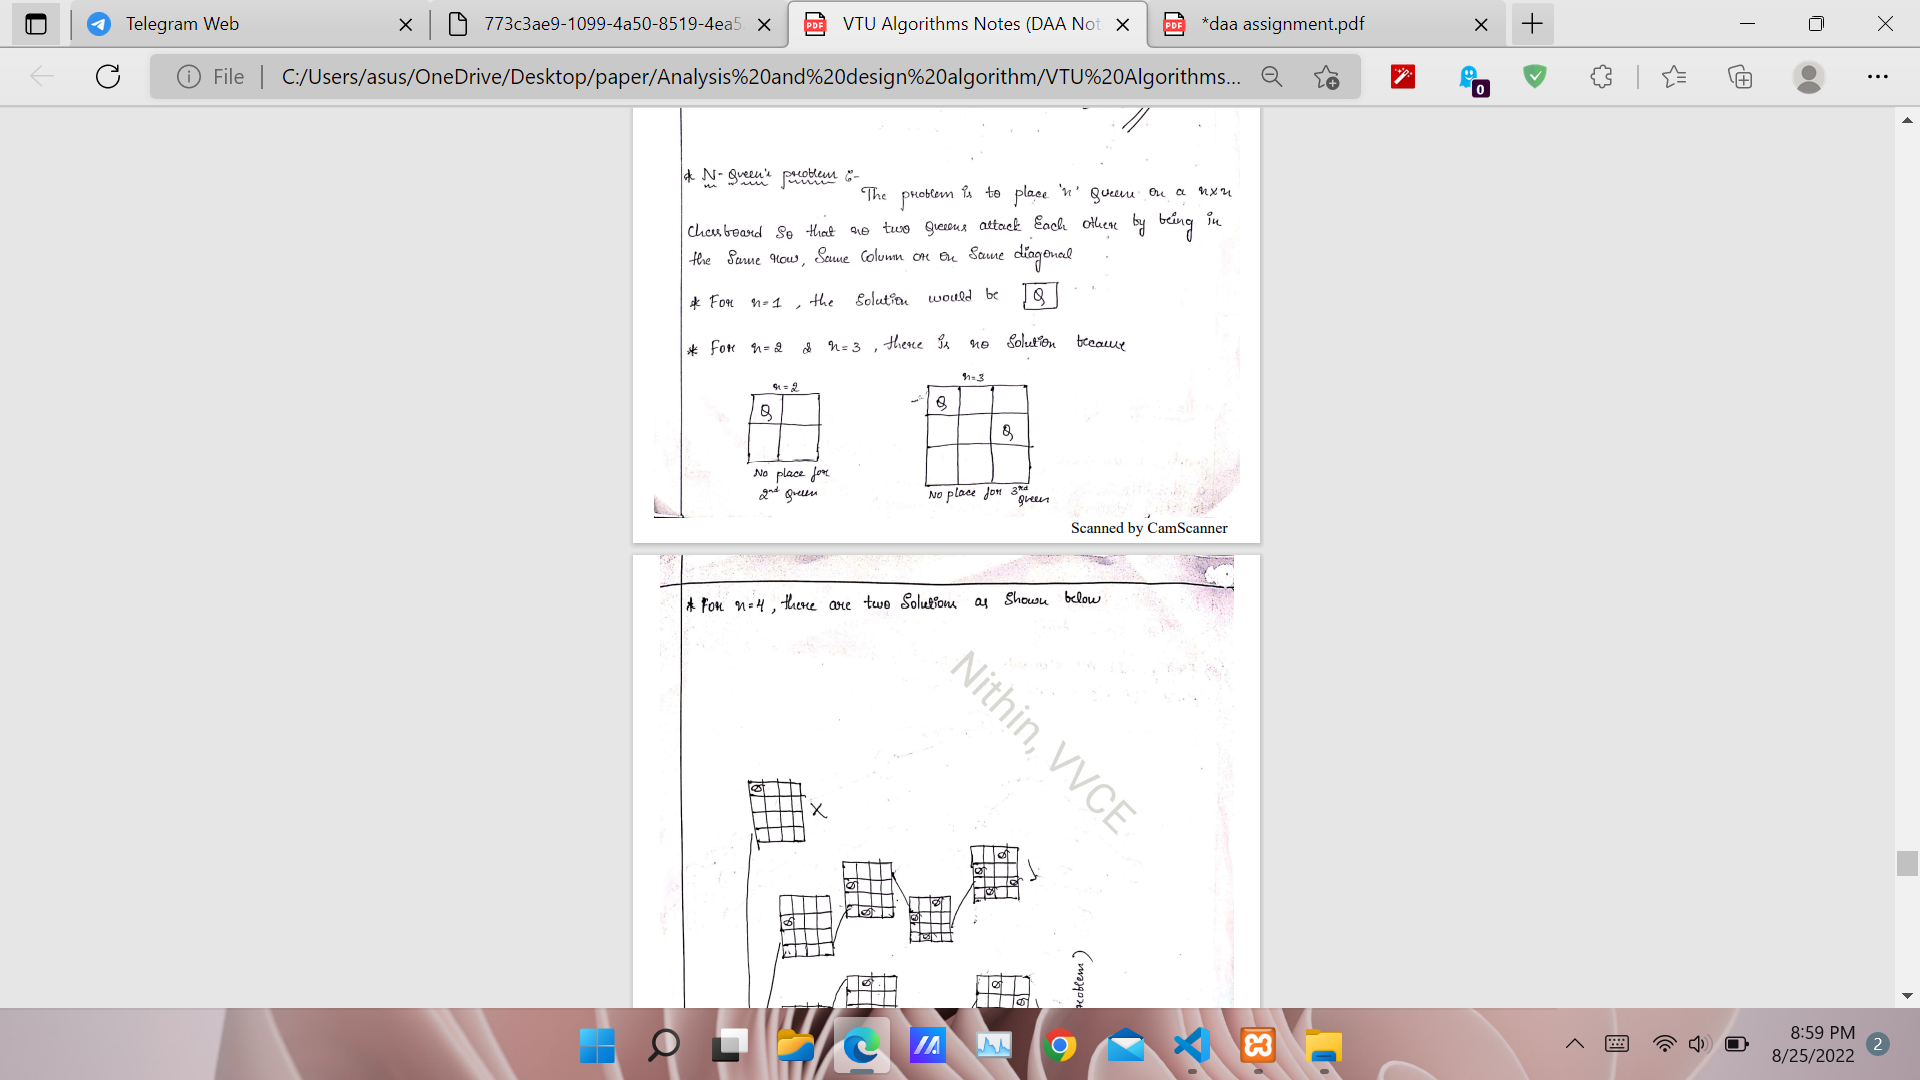 Telegram Web
773c3ae9-1099-4a50-8519-4ea5
VTU Algorithms Notes (DAA Not
*daa assignment.pdf
File
C:/Users/asus/OneDrive/Desktop/paper/Analysis%20and%20design%20algorithm/VTU%20Algorithms...
0
* N-Queen's problem :-
The problem is to place 'n' Queens on a nxn
Chessboard So that no two Queens attack Each other by being in
the Same row, Same Column or on Same diagonal
* For n=1, the Solution would be Q
* For n=2 & n=3, there is no Solution because
n=2
n=3
Q
Q
Q
No place for
2nd Queen
No place for 3rd
Queen
Scanned by CamScanner
* For n=4, there are two Solutions as Shown below
Nithin, VVCE
Q
X
Q
Q
Q
Q
Q
Q
Q
Q
Q
Q
Q
Q
Q
Q
8:59 PM
8/25/2022
2